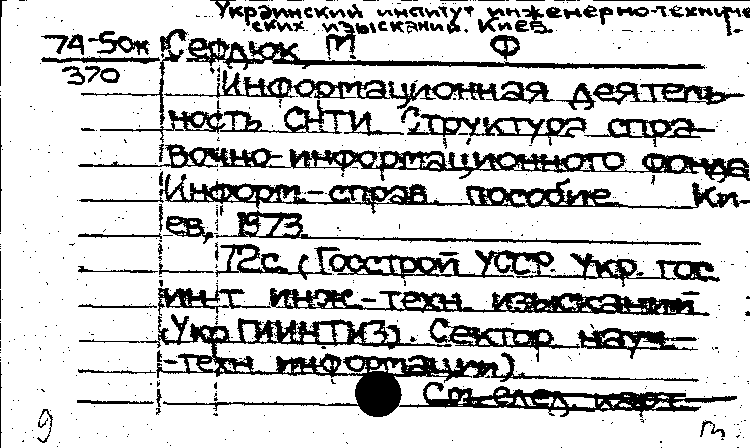 Украинский институт инженерно-техниче-
ских изысканий. Киев.
74-50к Сердюк М Ф
370
Информационная деятель-
ность СНТИ. Структура спра-
вочно-информационного фонда
Информ.-справ. пособие. Ки-
ев, 1973.
72с. (Госстрой УССР. Укр. гос.
ин-т инж.-техн. изысканий
(УкрГИИНТИЗ). Сектор науч.-
-техн. информации).
См. след. карт.
9